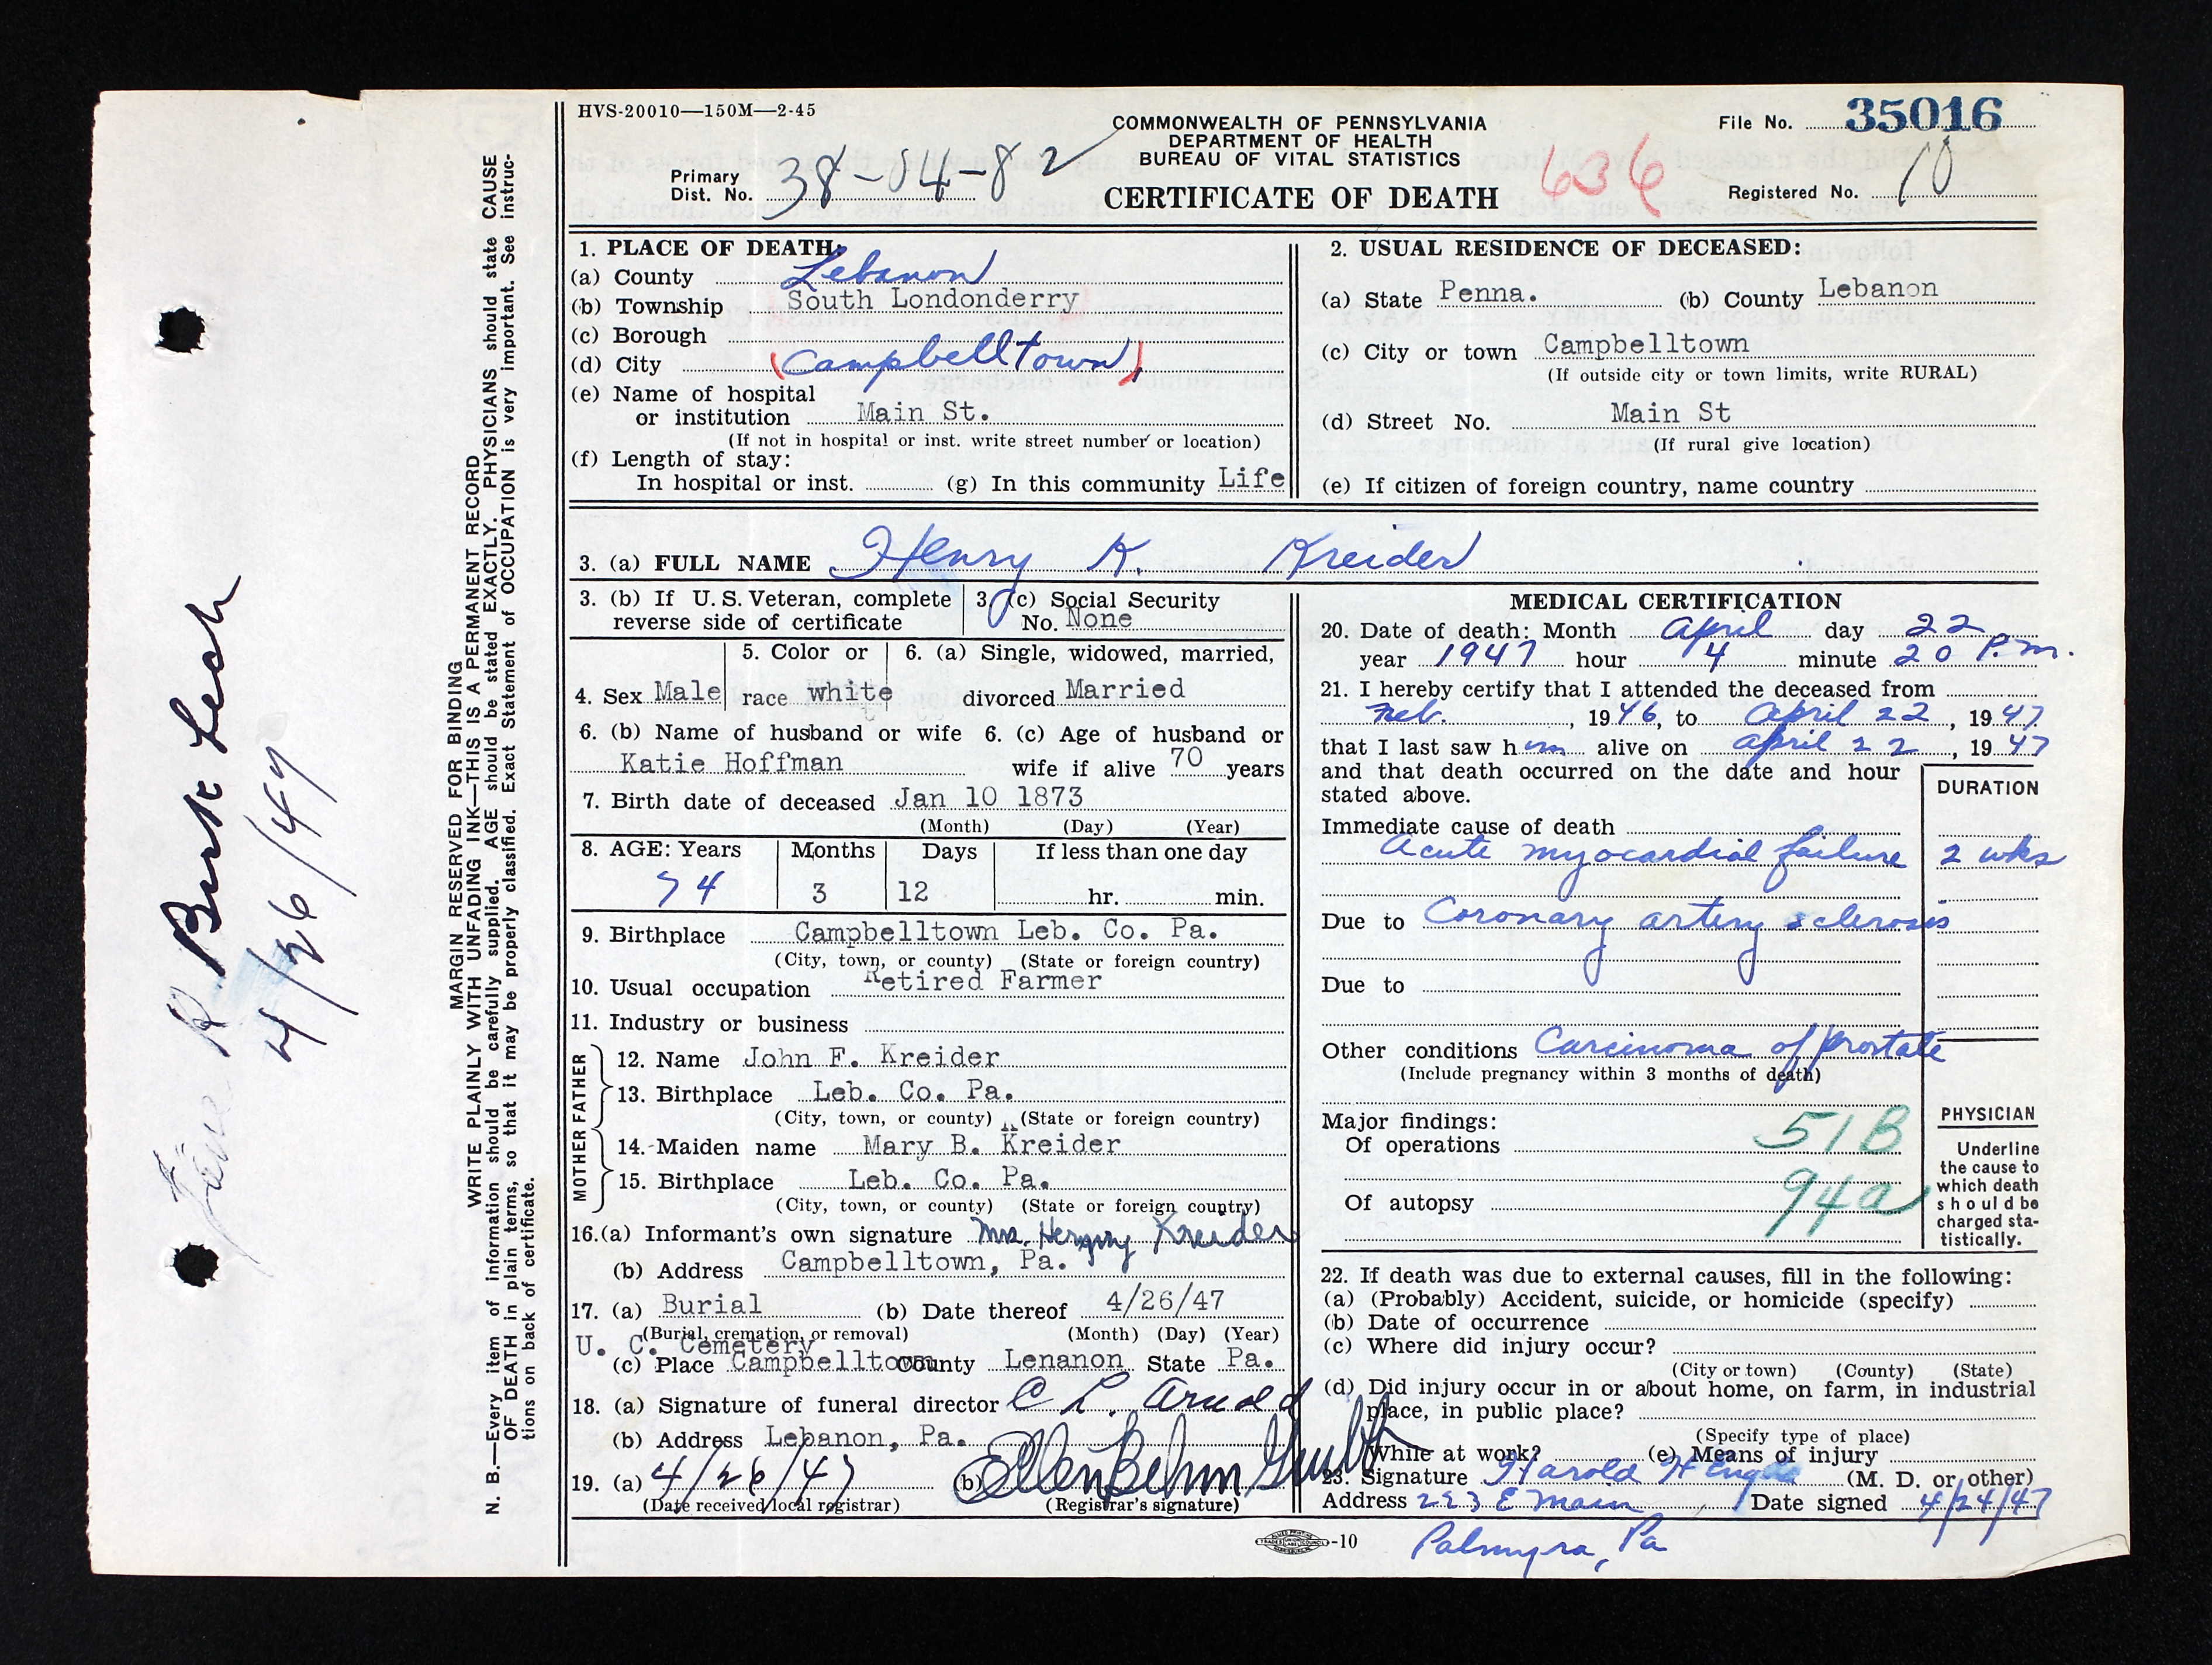 HVS-20010—150M—2-45
COMMONWEALTH OF PENNSYLVANIA
DEPARTMENT OF HEALTH
BUREAU OF VITAL STATISTICS
CERTIFICATE OF DEATH
File No. 35016
Primary
Dist. No. 38-04-82
636
Registered No. 10
1. PLACE OF DEATH:
(a) County Lebanon
(b) Township South Londonderry
(c) Borough
(d) City (Campbelltown)
(e) Name of hospital
or institution Main St.
(If not in hospital or inst. write street number or location)
(f) Length of stay:
In hospital or inst. (g) In this community Life
2. USUAL RESIDENCE OF DECEASED:
(a) State Penna. (b) County Lebanon
(c) City or town Campbelltown
(If outside city or town limits, write RURAL)
(d) Street No. Main St
(If rural give location)
(e) If citizen of foreign country, name country
3. (a) FULL NAME Henry K. Kreider
3. (b) If U. S. Veteran, complete
reverse side of certificate
3. (c) Social Security
No. None
4. Sex Male
5. Color or
race white
6. (a) Single, widowed, married,
divorced Married
6. (b) Name of husband or wife
Katie Hoffman
6. (c) Age of husband or
wife if alive 70 years
7. Birth date of deceased Jan 10 1873
(Month) (Day) (Year)
8. AGE: Years Months Days If less than one day
74 3 12 hr. min.
9. Birthplace Campbelltown Leb. Co. Pa.
(City, town, or county) (State or foreign country)
10. Usual occupation Retired Farmer
11. Industry or business
FATHER
12. Name John F. Kreider
13. Birthplace Leb. Co. Pa.
(City, town, or county) (State or foreign country)
MOTHER
14. Maiden name Mary B. Kreider
15. Birthplace Leb. Co. Pa.
(City, town, or county) (State or foreign country)
16.(a) Informant's own signature Mrs. Henry Kreider
(b) Address Campbelltown, Pa.
17. (a) Burial (b) Date thereof 4/26/47
(Burial, cremation, or removal) (Month) (Day) (Year)
U. C. Cemetery
(c) Place Campbelltown County Lenanon State Pa.
18. (a) Signature of funeral director C L. Arnold
(b) Address Lebanon, Pa.
19. (a) 4/26/47 (b) Ellen Behm
(Date received local registrar) (Registrar's signature)
MEDICAL CERTIFICATION
20. Date of death: Month April day 22
year 1947 hour 4 minute 20 P.m.
21. I hereby certify that I attended the deceased from
Feb. , 1946, to April 22, 1947
that I last saw him alive on April 22, 1947
and that death occurred on the date and hour
stated above.
DURATION
Immediate cause of death
Acute myocardial failure 2 wks
Due to Coronary artery sclerosis
Due to
Other conditions Carcinoma of prostate
(Include pregnancy within 3 months of death)
Major findings:
Of operations 51B
Of autopsy 94a
PHYSICIAN
Underline
the cause to
which death
should be
charged sta-
tistically.
22. If death was due to external causes, fill in the following:
(a) (Probably) Accident, suicide, or homicide (specify)
(b) Date of occurrence
(c) Where did injury occur?
(City or town) (County) (State)
(d) Did injury occur in or about home, on farm, in industrial
place, in public place?
(Specify type of place)
While at work? (e) Means of injury
23. Signature Harold H Engle (M. D. or other)
Address 223 E Main Date signed 4/24/47
Palmyra, Pa
-10
MARGIN RESERVED FOR BINDING
WRITE PLAINLY WITH UNFADING INK—THIS IS A PERMANENT RECORD
N. B.—Every item of information should be carefully supplied. AGE should be stated EXACTLY. PHYSICIANS should state CAUSE
OF DEATH in plain terms, so that it may be properly classified. Exact Statement of OCCUPATION is very important. See instruc-
tions on back of certificate.
4/26/47